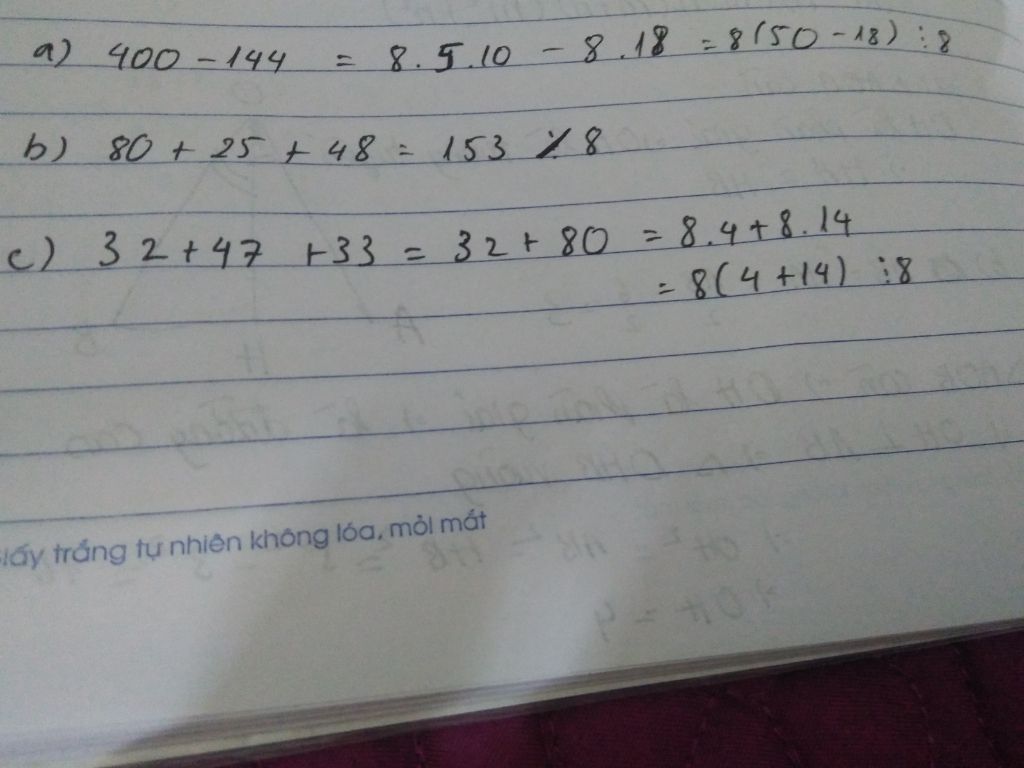 a) 400 - 144 = 8.5.10 - 8.18 = 8(50 - 18) ⋮ 8
b) 80 + 25 + 48 = 153 ⋮̸ 8
c) 32 + 47 + 33 = 32 + 80 = 8.4 + 8.14
= 8(4 + 14) ⋮ 8
giấy trắng tự nhiên không lóa, mỏi mắt